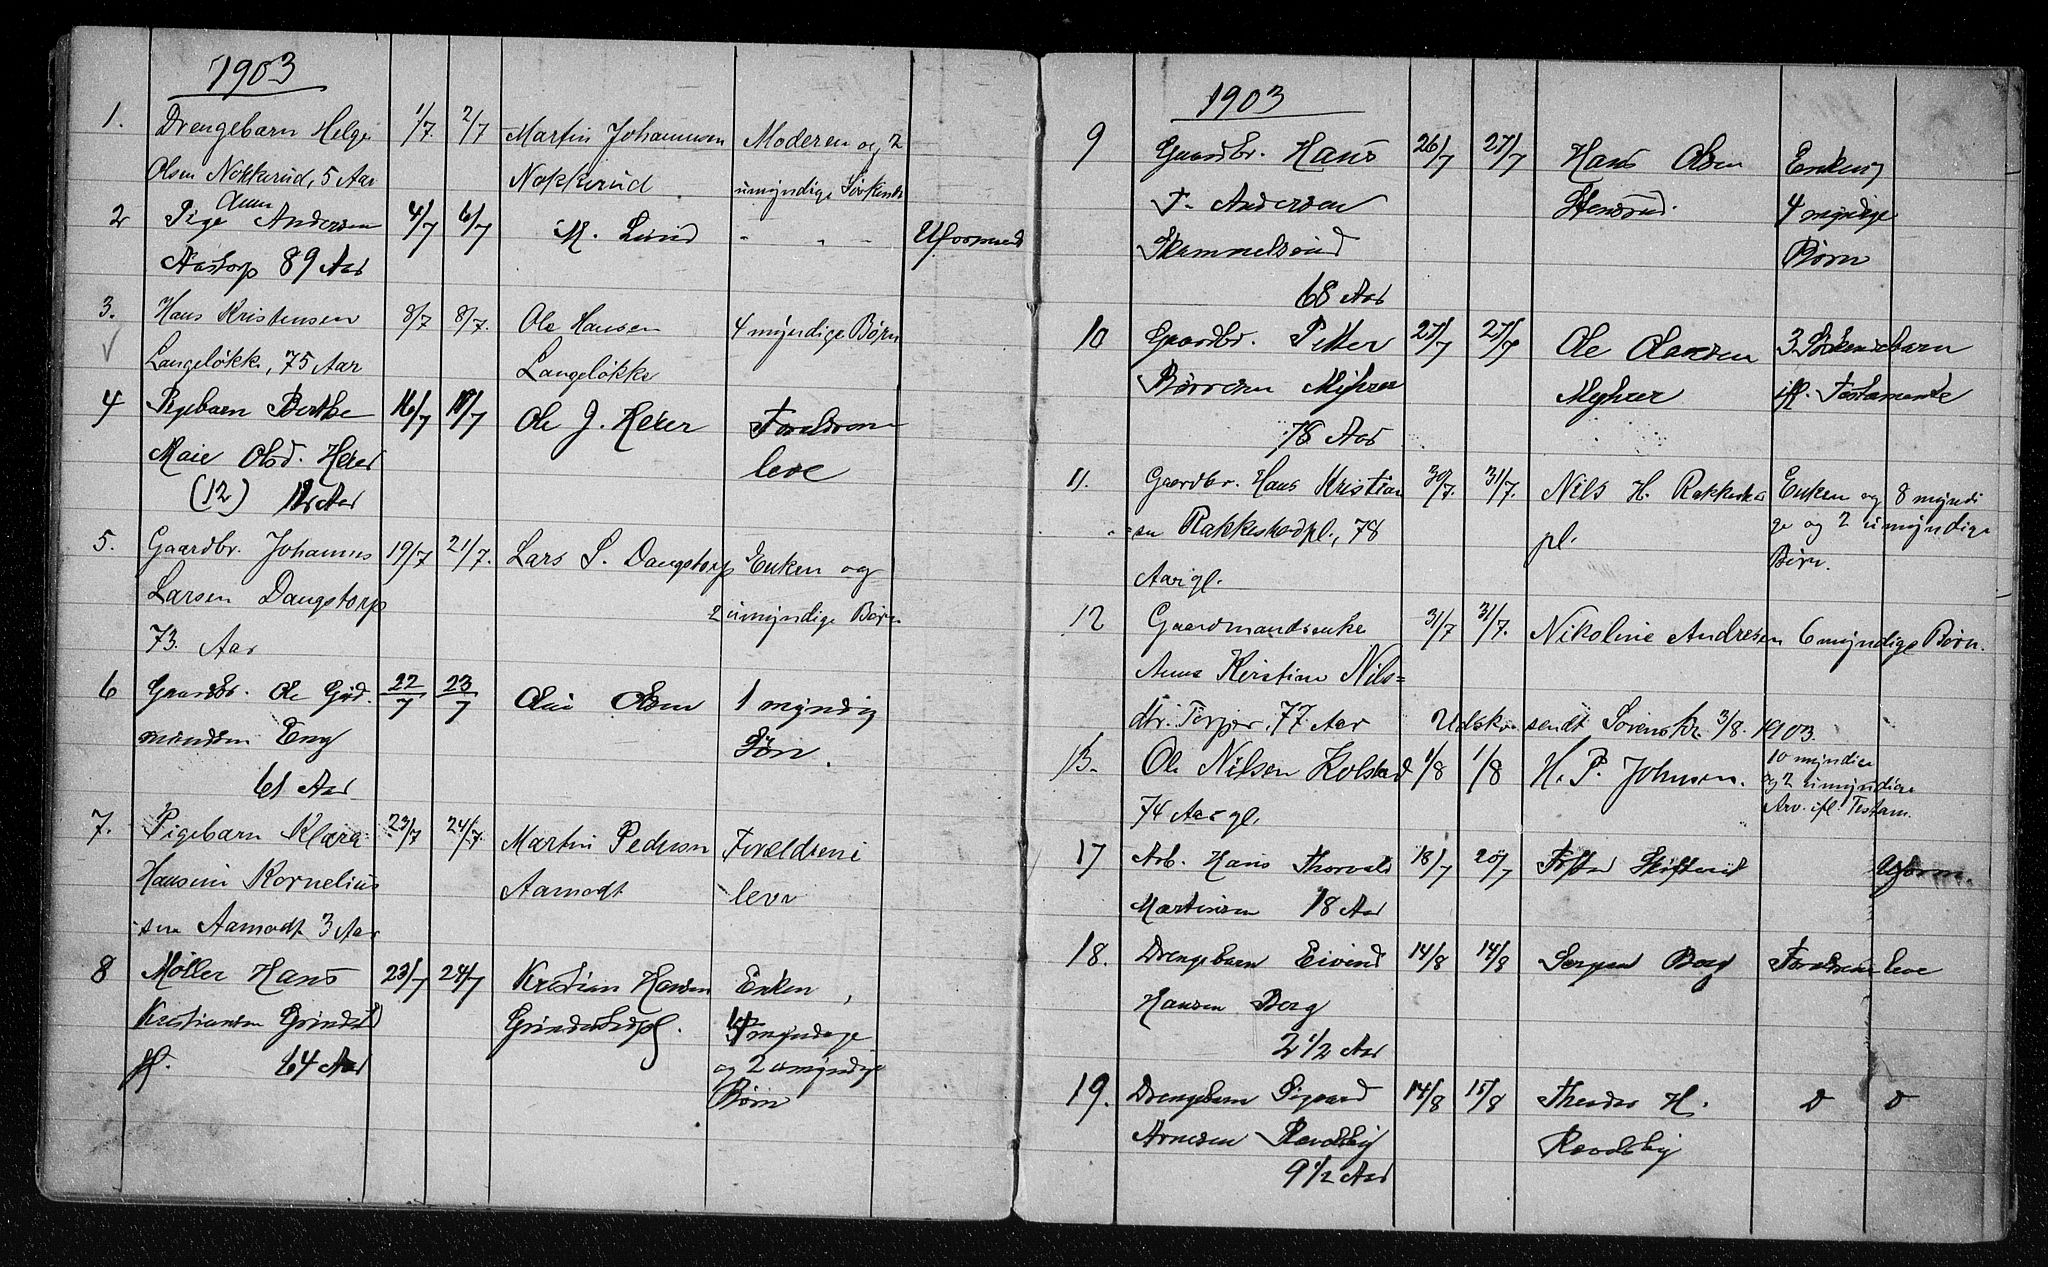 1903
1. Drengebarn Helge 1/7 2/7 Martin Johannesen Moderen og 2
Olsen Nokkerud, 5 Aar Nokkerud umyndige Søskende
Anne
2 Pige Andersen 4/7 6/7 M. Lund - - - Uformuend
Aastorp 89 Aar
3. Hans Kristensen 8/7 8/7. Ole Hansen 4 myndige Børn
Langeløkke, 75 Aar Langeløkke
4 Pigebarn Berthe 16/7 /7 Ole J. Heier Foreldrene
Marie Olsd. Heier leve
(12) 12 Aar
5. Gaardbr. Johannes 19/7 21/7. Lars S. Dangstorp Enken og
Larsen Dangstorp 2 umyndige Børn
73. Aar
6 Gaardbr. Ole Gud- 22/7 23/7 Olsen 1 myndig
mundsen Eng Søn.
61 Aar
7. Pigebarn Klara 23/7 24/7. Martin Pedersen Forældrene
Hansine Kornelius Aamodt leve
sen Aamodt 3 Aar
8 Møller Hans 23/7 24/7 Kristian Hansen Enken,
Kristiansen Grindst pl. myndige
pl. 64 Aar og 2 umyndige
Børn
1903
9 Gaardbr. Hans 26/7 27/7 Hans Olsen Enken og
T. Andersen Stensrud. 4 myndige
Skammelsrud Børn
68 Aar
10 Gaardbr. Petter 27/7 27/7 Ole Olausen 3 Søskendebarn
Børresen Myhrer Myhrer ifl. Testamente
78 Aar
11. Gaardbr. Hans Kristian 30/7. 31/7. Nils H. Rakkesta Enken og 8 myndi
=sen Rakkestadpl., 78 pl. ge og 2 umyndige
Aar gl. Børn.
12 Gaardmandsenke 31/7 31/7. Nikoline Andresen 6 myndige Børn.
Anne Kirstine Nils=
dtr. Torper, 77 Aar Udskr. sendt Sorenskr. 3/8. 1903.
13. Ole Nilsen Kolstad 1/8 1/8 H. P. Johnsen. 10 myndige
74 Aar gl. og 2 umyndige
Arv. ifl. Testam.
17 Arb. Hans Thorvald 18/7 20/7 Uform.
Martinsen 18 Aar
18. Drengebarn Eivind 14/8 14/8 Jørgen Berg Foreldrene leve
Hansen Berg
2 1/2 Aar
19. Drengebarn Sigvard 14/8 15/8 Theodor H. D D
Arnesen Ravdsby Ravdsby
9 1/2 Aar